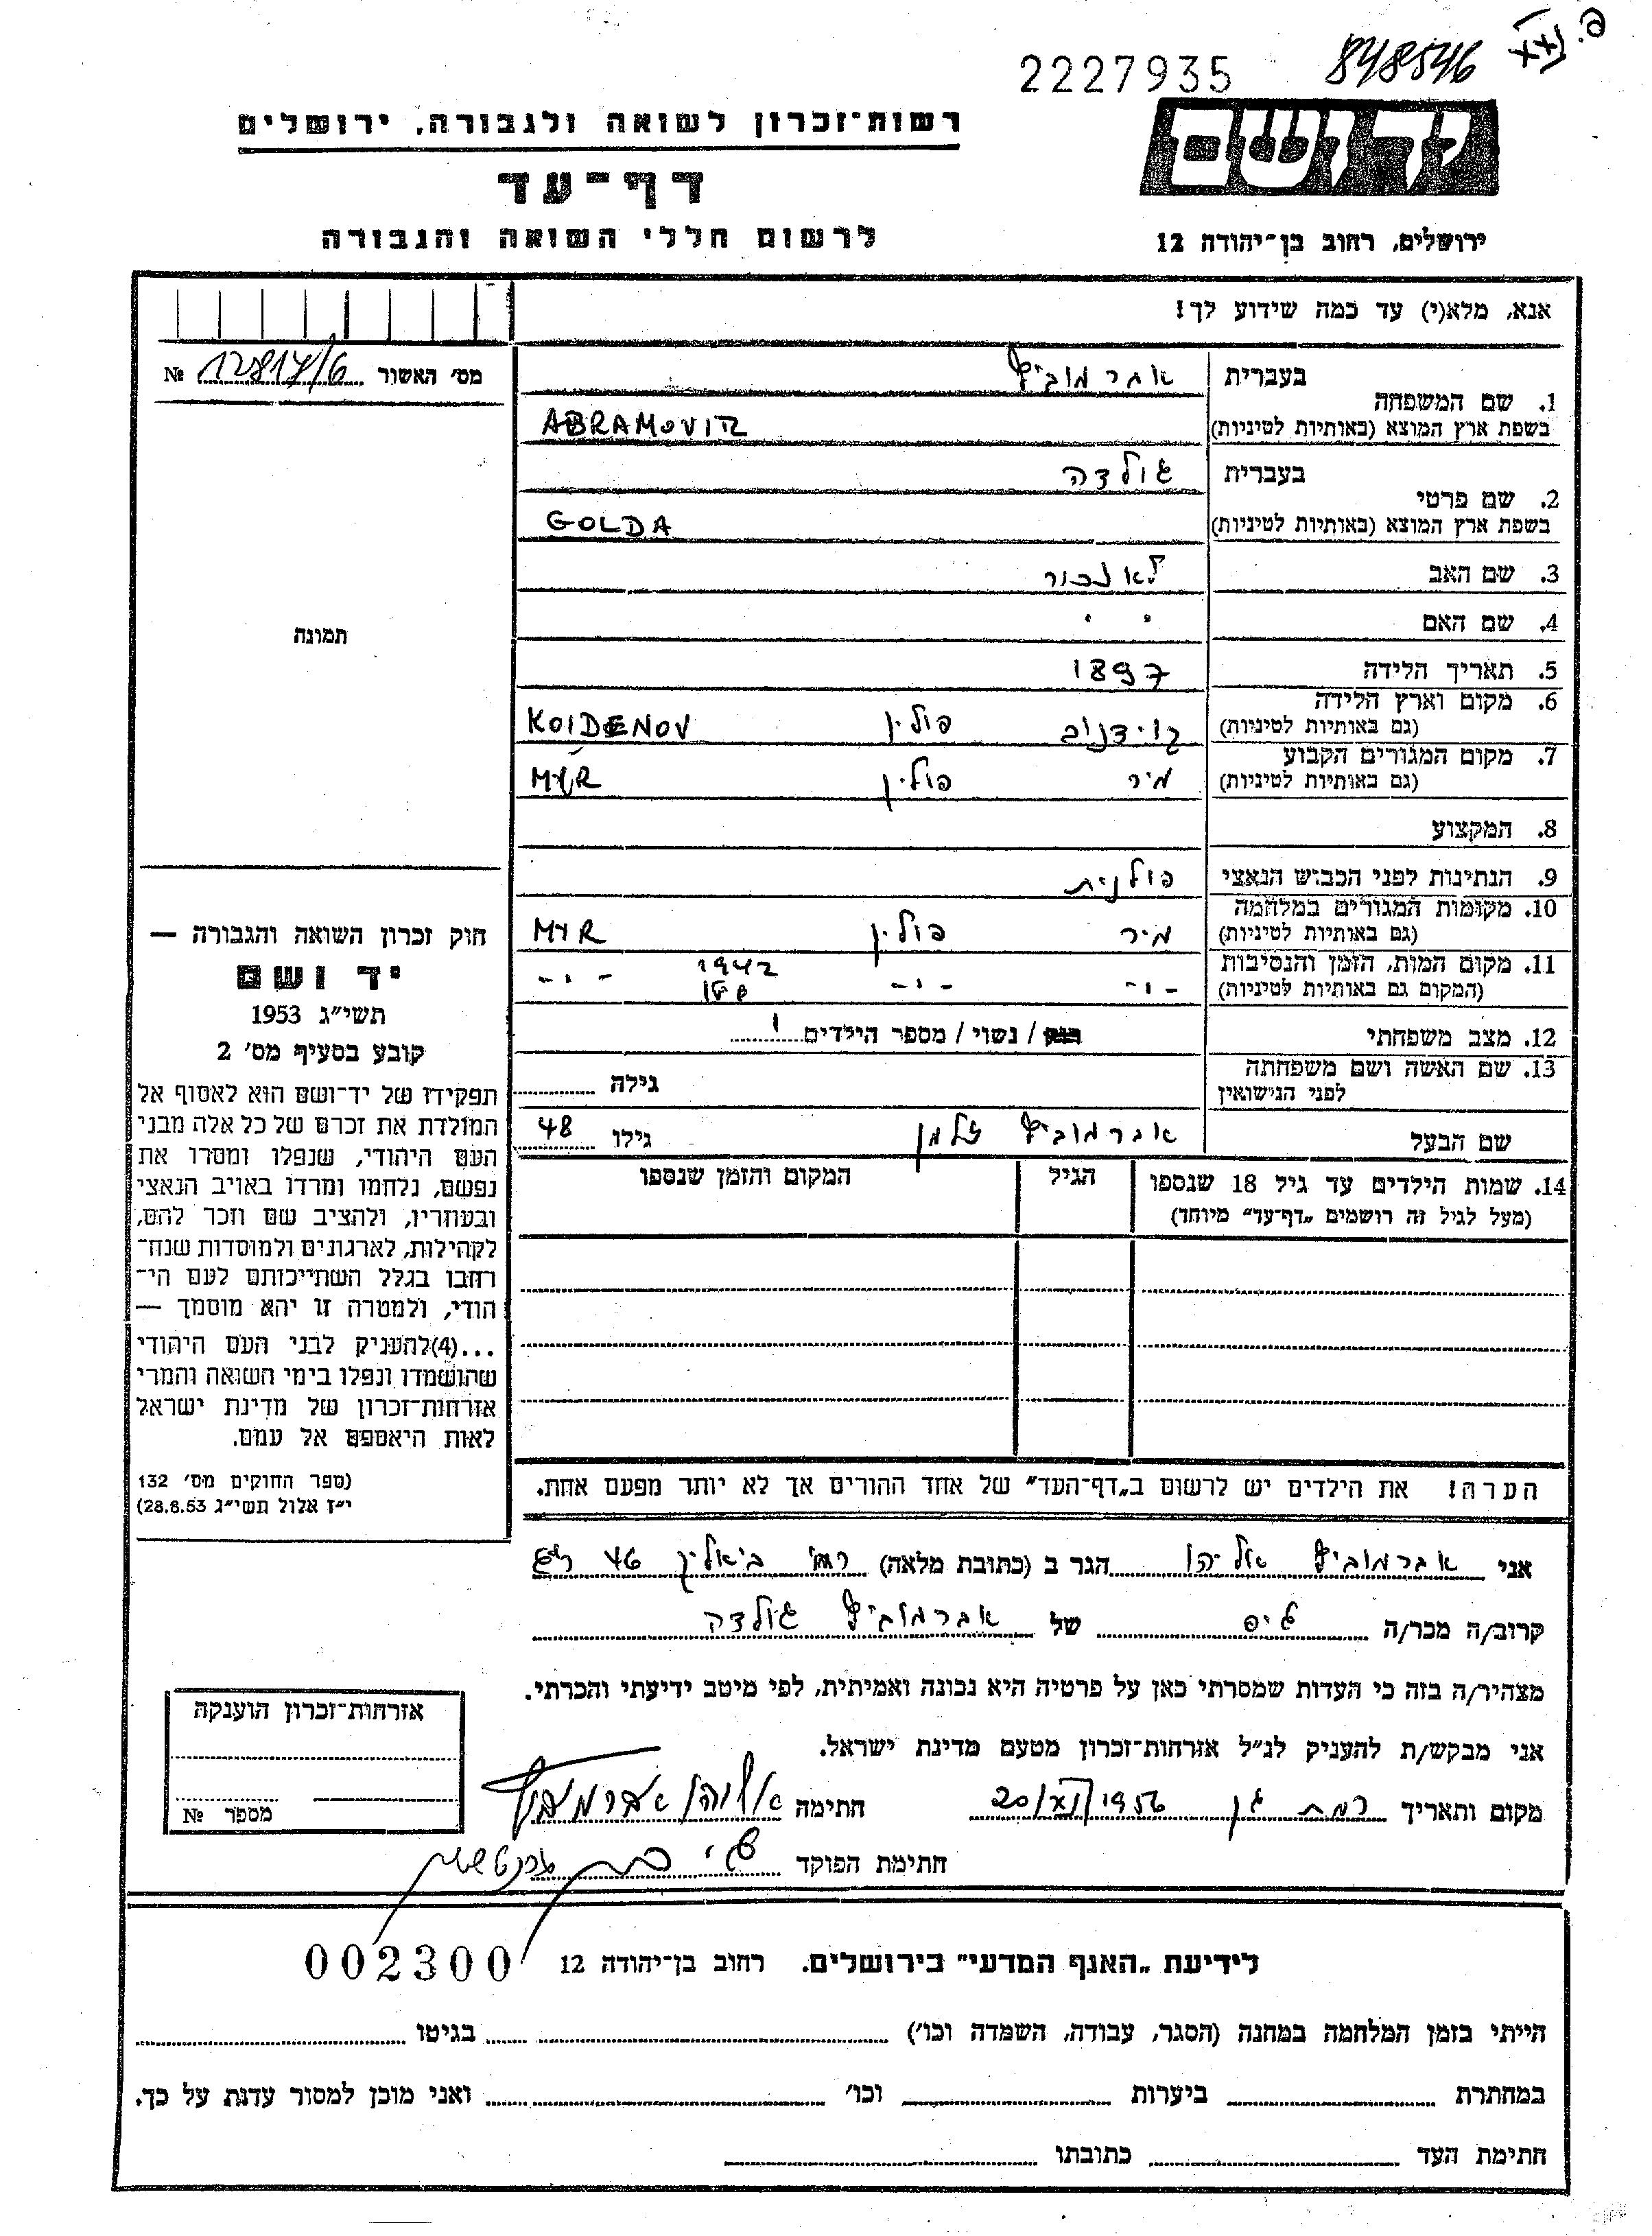 פ. XXI
2227935 848546
יד ושם
רשות־זכרון לשואה ולגבורה, ירושלים
דף־עד
לרשום חללי השואה והגבורה
ירושלים, רחוב בן־יהודה 12
אנא, מלא(י) עד כמה שידוע לך!
מס׳ האשור 12817/6 №
1. שם המשפחה
בעברית אברמוביץ
בשפת ארץ המוצא (באותיות לטיניות) ABRAMOVIR
2. שם פרטי
בעברית גולדה
בשפת ארץ המוצא (באותיות לטיניות) GOLDA
3. שם האב לא זכור
4. שם האם " "
5. תאריך הלידה 1897
6. מקום וארץ הלידה
(גם באותיות לטיניות) קוידנוב פולין KOIDENOV
7. מקום המגורים הקבוע
(גם באותיות לטיניות) מיר פולין MYR
8. המקצוע
9. הנתינות לפני הכבוש הנאצי פולנית
10. מקומות המגורים במלחמה
(גם באותיות לטיניות) מיר פולין MYR
11. מקום המות, הזמן והנסיבות
(המקום גם באותיות לטיניות) -"- -"- 1942 -"-
12. מצב משפחתי רווק / נשוי / מספר הילדים 1
13. שם האשה ושם משפחתה
לפני הנישואין גילה
שם הבעל אברמוביץ זלמן גילו 48
14. שמות הילדים עד גיל 18 שנספו הגיל המקום והזמן שנספו
(מעל לגיל זה רושמים „דף־עד" מיוחד)
הערה! את הילדים יש לרשום ב„דף־העד" של אחד ההורים אך לא יותר מפעם אחת.
תמונה
חוק זכרון השואה והגבורה —
יד ושם
תשי״ג 1953
קובע בסעיף מס׳ 2
תפקידו של יד־ושם הוא לאסוף אל
המולדת את זכרם של כל אלה מבני
העם היהודי, שנפלו ומסרו את
נפשם, נלחמו ומרדו באויב הנאצי
ובעוזריו, ולהציב שם וזכר להם,
לקהילות, לארגונים ולמוסדות שנח־
רחבו בגלל השתייכותם לעם הי־
הודי, ולמטרה זו יהא מוסמך —
...(4)להעניק לבני העם היהודי
שהושמדו ונפלו בימי השואה והמרי
אזרחות־זכרון של מדינת ישראל
לאות היאספם אל עמם.
(ספר החוקים מס׳ 132
י״ז אלול תשי״ג 28.8.53)
אני אברמוביץ אליהו הגר ב (כתובת מלאה) רח׳ ביאליק 46 ר״ג
קרוב/ה מכר/ה גיס של אברמוביץ גולדה
מצהיר/ה בזה כי העדות שמסרתי כאן על פרטיה היא נכונה ואמיתית, לפי מיטב ידיעתי והכרתי.
אני מבקש/ת להעניק לנ״ל אזרחות־זכרון מטעם מדינת ישראל.
מקום ותאריך רמת גן 20/XI/1956 חתימה אליהו אברמוביץ
חתימת הפוקד
אזרחות־זכרון הוענקה
מספר №
לידיעת „האגף המדעי" בירושלים. רחוב בן־יהודה 12 002300
הייתי בזמן המלחמה במחנה (הסגר, עבודה, השמדה וכו׳) בגיטו
במחתרת ביערות וכו׳ ואני מוכן למסור עדות על כך.
חתימת העד כתובתו